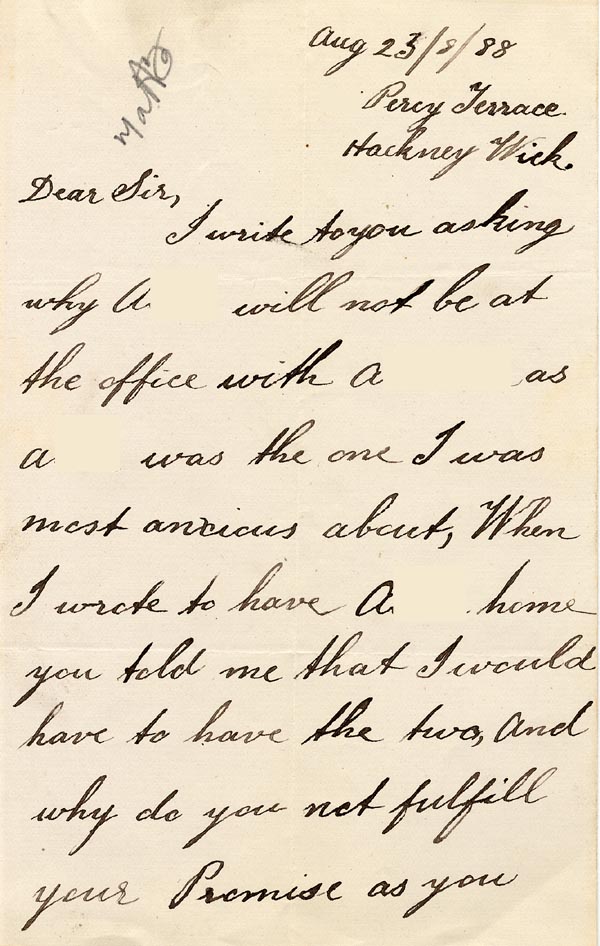 Aug 23/8/88
Percy Terrace
Hackney Wick.
Dear Sir,
I write to you asking
why A will not be at
the office with A as
a was the one I was
most anxious about, When
I wrote to have A. home
you told me that I would
have to have the two, And
why do you not fulfill
your Promise as you